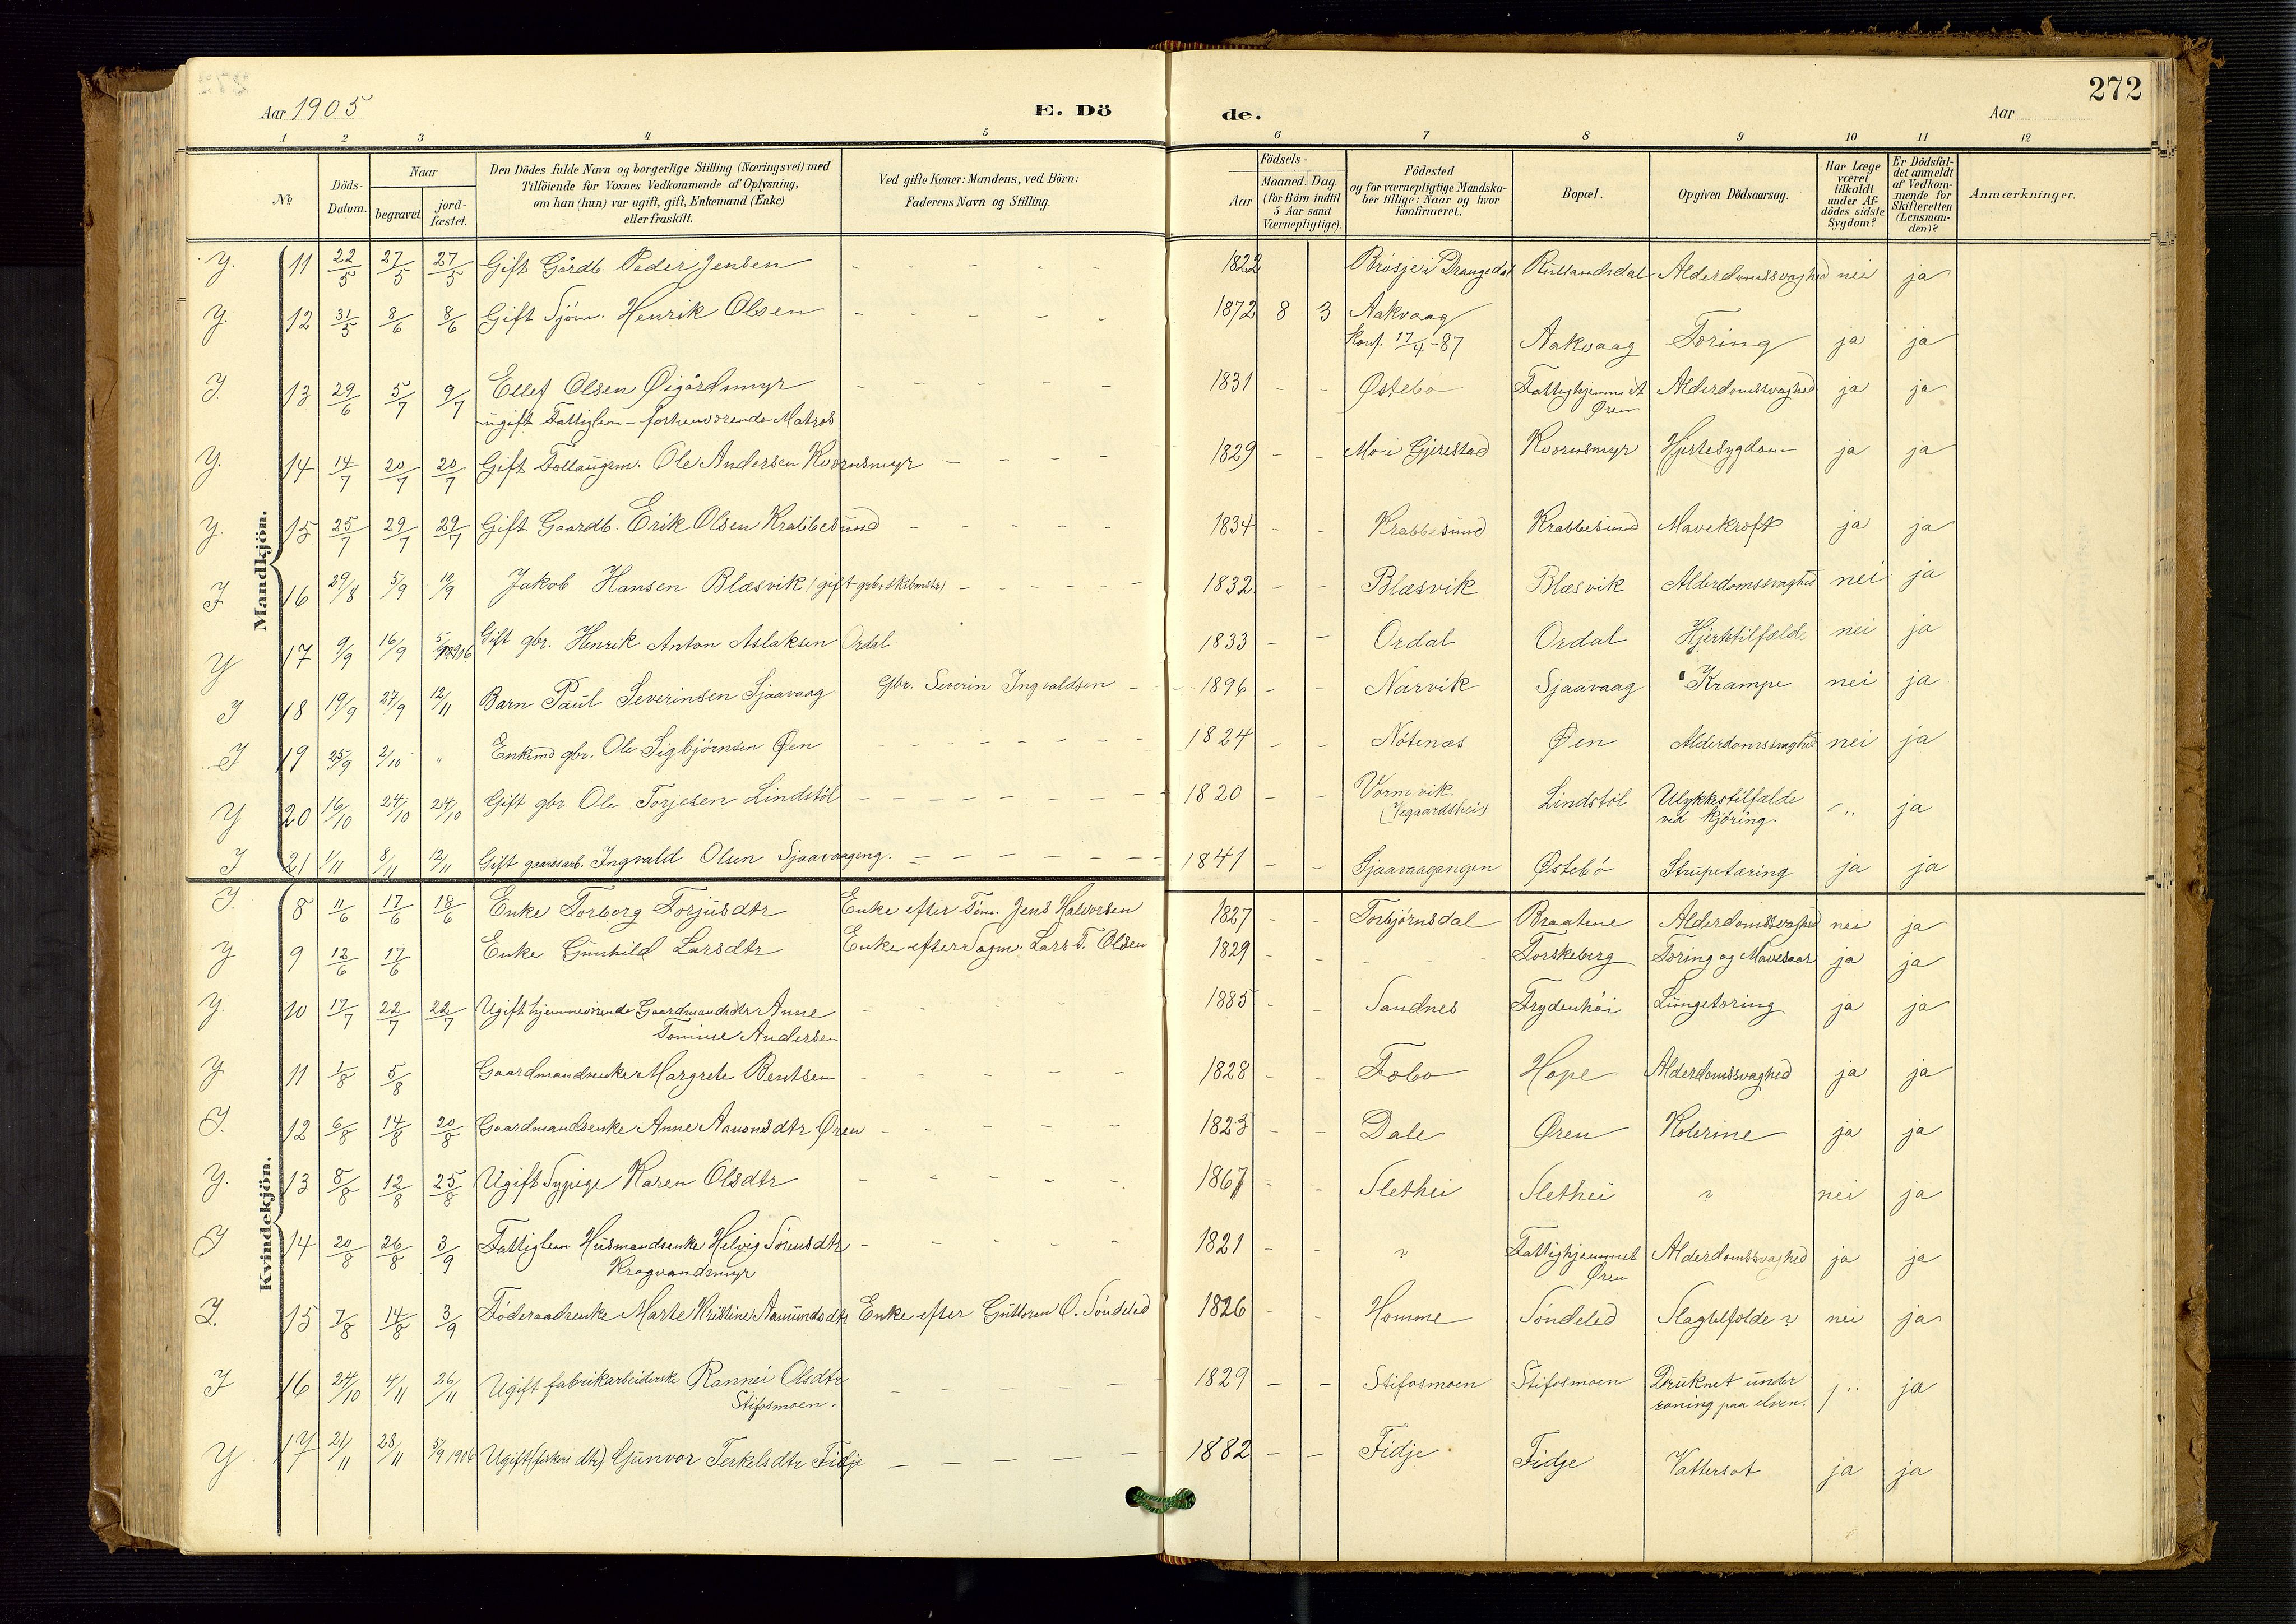 Aar 1905 E. Döde. Aar 272
1 2 3 4 5 6 7 8 9 10 11 12
№ Döds-Datum. Naar begravet. jordfæstet. Den Dödes fulde Navn og borgerlige Stilling (Næringsvei) med Tilföiende for Voxnes Vedkommende af Oplysning, om han (hun) var ugift, gift, Enkemand (Enke) eller fraskilt. Ved gifte Koner: Mandens, ved Börn: Faderens Navn og Stilling. Födsels- Aar Maaned. Dag. (for Börn indtil 5 Aar samt Værnepligtige). Födested og for værnepligtige Mandskaber tillige: Naar og hvor konfirmeret. Bopæl. Opgiven Dödsaarsag. Har Læge været tilkaldt under Afdödes sidste Sygdom? Er Dödsfaldet anmeldt af Vedkommende for Skifteretten (Lensmanden)? Anmærkninger.
Mandkjön.
Y. 11 22/5 27/5 27/5 Gift Gårdb. Peder Jensen - - - - - 1822 Brosje i Drangedal Rullandsdal Alderdomssvaghed nei ja
Y. 12 31/5 8/6 8/6 Gift Sjöm. Henrik Olsen - - - - - 1872 8 3 Aakvaag
Konf. 17/4-87 Aakvaag Tæring ja ja
I. 13 29/6 5/7 9/7 Ellef Olsen Øigårdsmyr - - - - - 1831 - - Østebø Fattighjemmet Alderdomssvaghed ja ja
ugift Fattiglem - forhenværende Matros Øren
Y. 14 14/7 20/7 20/7 Gift Tollaugsm. Ole Andersen Kværnsmyr - - - - 1829 - - Mo i Gjerestad Kværnsmyr Hjertesygdom ja ja
Y. 15 25/7 29/7 29/7 Gift Gaardb. Erik Olsen Krabbesund - - - - 1834 - - Krabbesund Krabbesund Mavekræft ja ja
I 16 29/8 5/9 10/9 Jakob Hansen Blæsvik (gift gbr. skibmstr) - - - - - 1832 - - Blæsvik Blæsvik Alderdomssvaghed nei ja
Y 17 9/9 16/9 5/9 1906 Gift gbr. Henrik Anton Aslaksen Ordal 1833 - - Ordal Ordal Hjertetilfælde nei ja
I 18 19/9 27/9 12/11 Barn Paul Severinsen Sjaavaag Gbr. Severin Ingvaldsen - 1896 - - Narvik Sjaavaag Krampe nei ja
I 19 25/9 2/10 " Enkemd gbr. Ole Sigbjörnsen Øen - - - - - - - 1824 - - Nötenæs Øen Alderdomssvaghed nei ja
Y 20 16/10 24/10 24/10 Gift gbr Ole Torjesen Lindstöl - - - - - - - 1820 - - Vormvik Lindstöl Ulykkestilfælde " ja
(Vegaardshei) ved kjöring.
I 21 1/11 8/11 12/11 Gift gaardsarb. Ingvald Olsen Sjaavaageng. - - - - - - - 1841 - - Sjaavaagengen Østebö Strupetæring ja ja
Kvindekjön.
I. 8 11/6 17/6 18/6 Enke Torborg Torjusdtr Enke efter Töm. Jens Halvorsen 1827 - - Torbjörnsdal Braatene Alderdomssvaghed nei ja
Y 9 12/6 17/6 Enke Gunhild Larsdtr Enke efter Sagm. Lars T. Olsen 1829 - - - - - Torskeberg Tæring og Mavesaar ja ja
Y. 10 17/7 22/7 22/7 Ugift hjemmeværende Gaardmandsdtr Anne - - - - - 1885 - - Sandnes Frydenhöi Lungetæring ja ja
Tomine Andersen
Y. 11 1/8 5/8 Gaardmandsenke Margrete Bentsen - - - - - 1828 - - Fobo Hope Alderdomssvaghed ja ja
I. 12 6/8 14/8 20/8 Gaardmandsenke Anne Aanonsdtr Øren - - - - - 1823 - - Dale Øren Kolerine ja ja
Y. 13 8/8 12/8 25/8 Ugift Sypige Karen Olsdtr - - - - - 1867 - - Slethei Slethei ? nei ja
I 14 20/8 26/8 3/9 Fattiglem Husmandsenke Helvig Sörensdtr - - - - - 1821 - - ? Fattighjemmet Alderdomssvaghed ja ja
Kragvandsmyr Øren
I. 15 7/8 14/8 3/9 Föderaadsenke Marte Kristine Aamundsdtr Enke efter Guttorm O. Söndeled 1826 - - Homme Söndeled Slagtilfælde ? nei ja
I 16 24/10 4/11 26/11 Ugift fabrikarbeiderske Rannei Olsdtr - - - - - 1829 - - Stifosmoen Stifosmoen Druknet under " ja
Stifosmoen. roning paa elven.
Y. 17 21/11 28/11 5/9 1906 Ugift (fiskers dtr) Gunvor Terkelsdtr Fidje - - - - - 1882 - - Fidje Fidje Vattersot ja ja